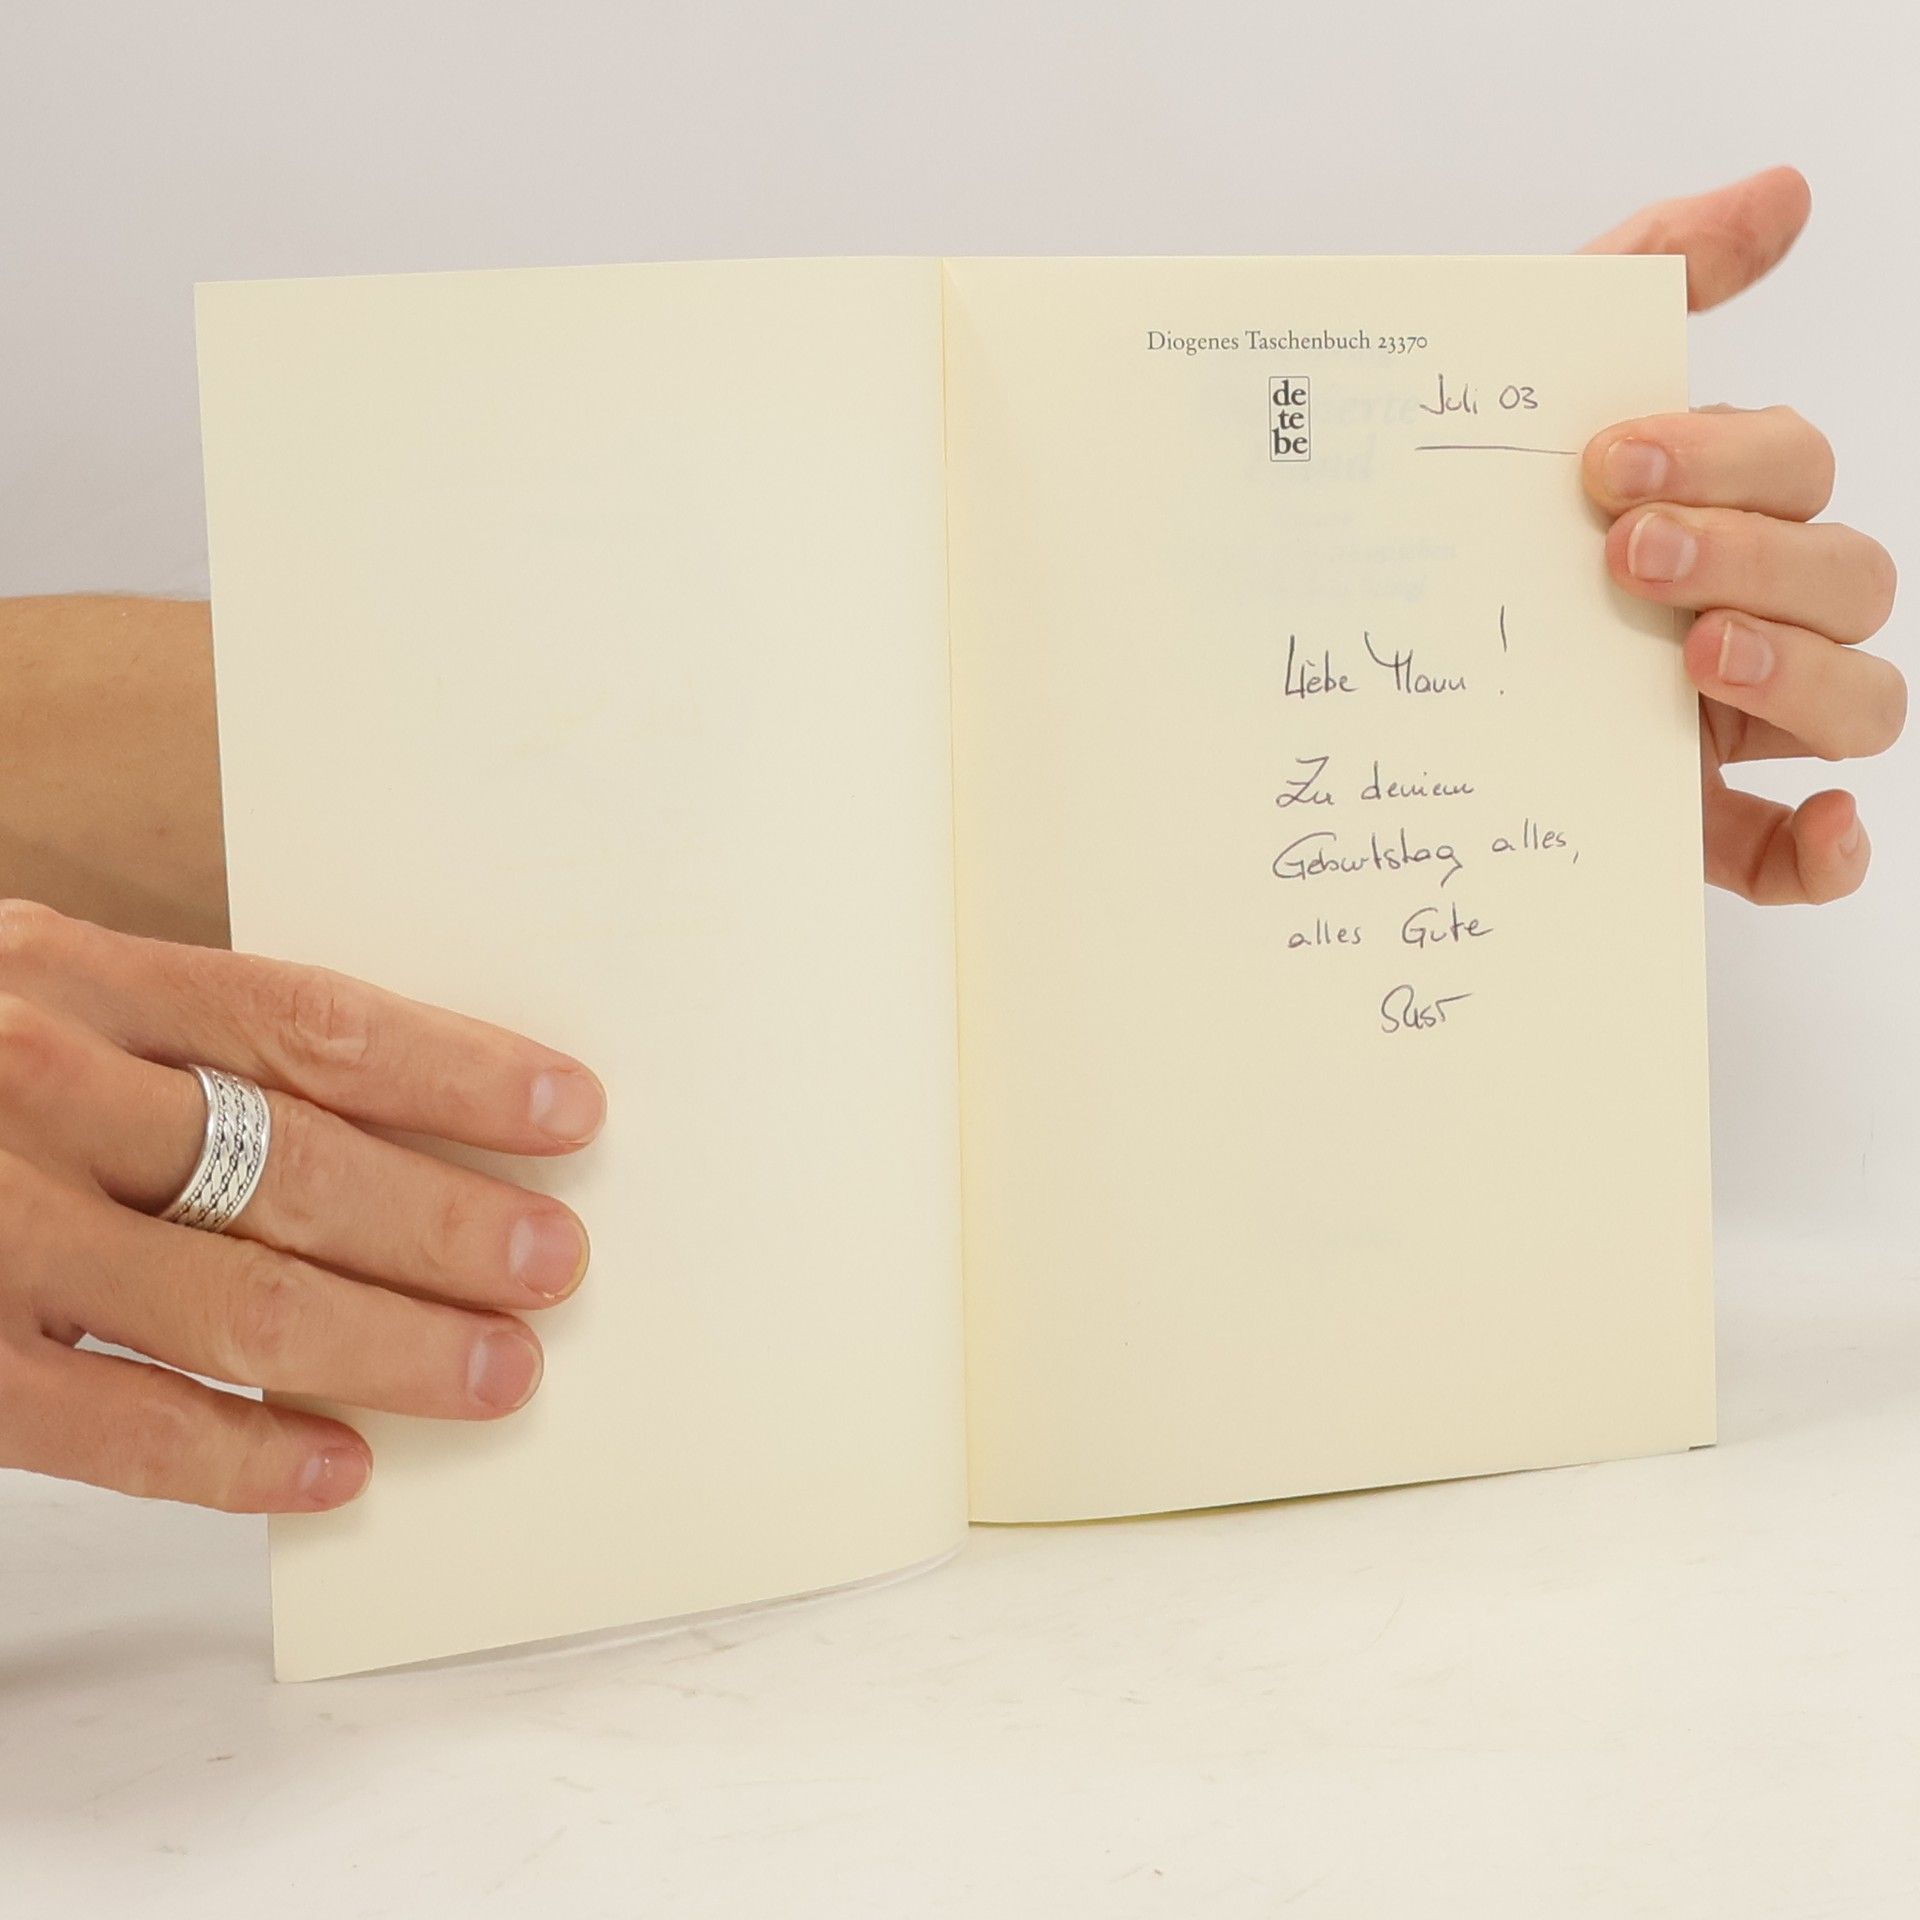 Diogenes Taschenbuch 23370
de
te
be
Juli 03
Liebe Mann !
Zu deinem
Geburtstag alles,
alles Gute